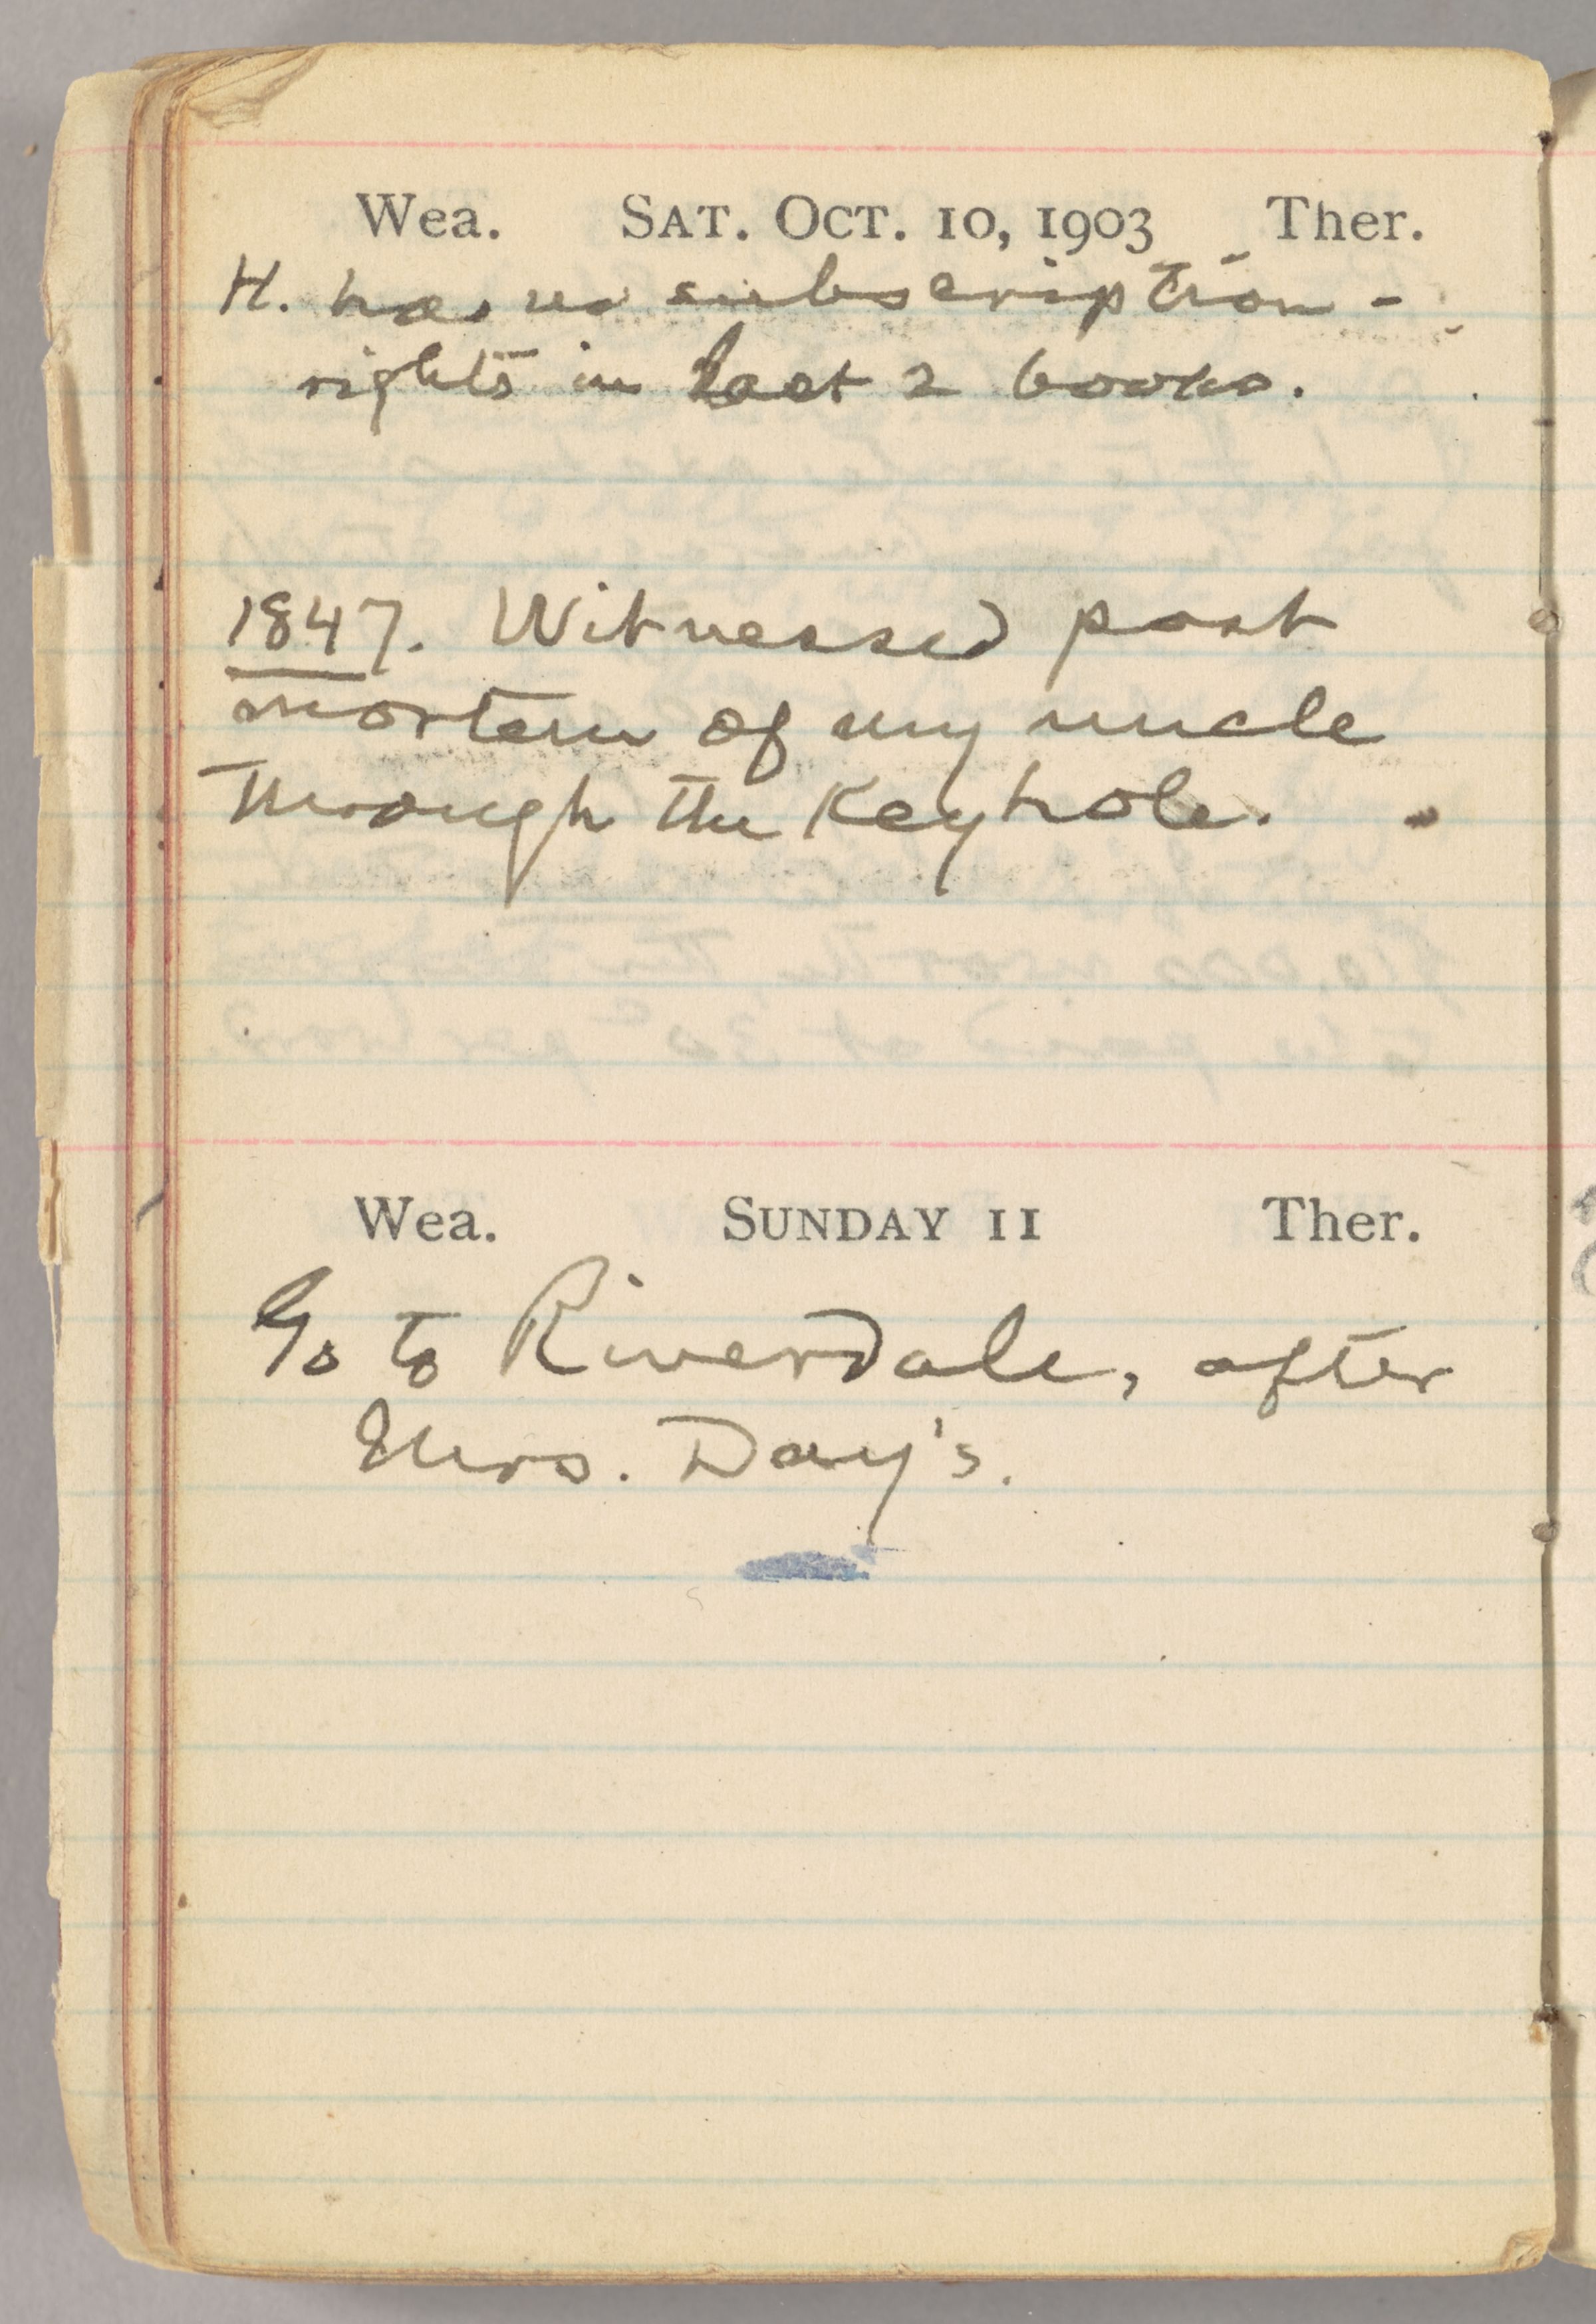 Wea. SAT. OCT. 10, 1903 Ther.
H. has no subscription-
rights in last 2 books.
1847. Witnessed post
mortem of my uncle
through the keyhole.
Wea. SUNDAY 11 Ther.
Go to Riverdale, after
Mrs. Day's.